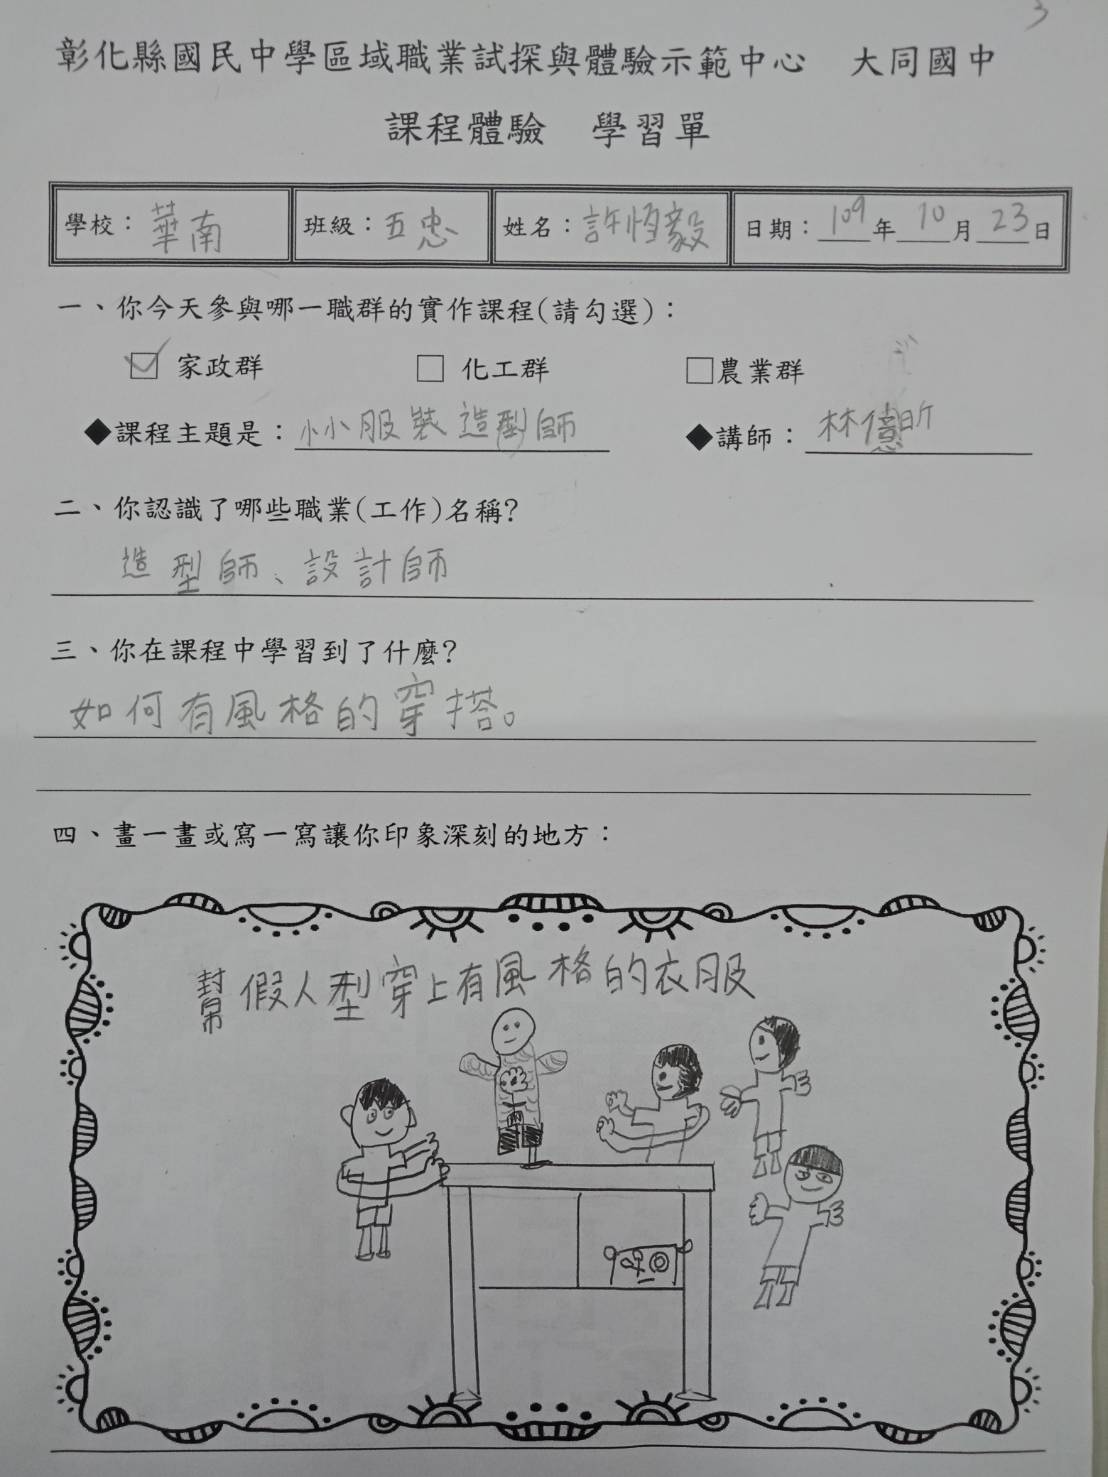 3
彰化縣國民中學區域職業試探與體驗示範中心 大同國中
課程體驗 學習單
學校：華南 班級：五忠 姓名：許恒毅 日期：109年10月23日
一、你今天參與哪一職群的實作課程(請勾選)：
☑ 家政群 □ 化工群 □農業群
◆課程主題是：小小服裝造型師 ◆講師：林億昕
二、你認識了哪些職業(工作)名稱?
造型師、設計師
三、你在課程中學習到了什麼?
如何有風格的穿搭。
四、畫一畫或寫一寫讓你印象深刻的地方：
幫假人型穿上有風格的衣服